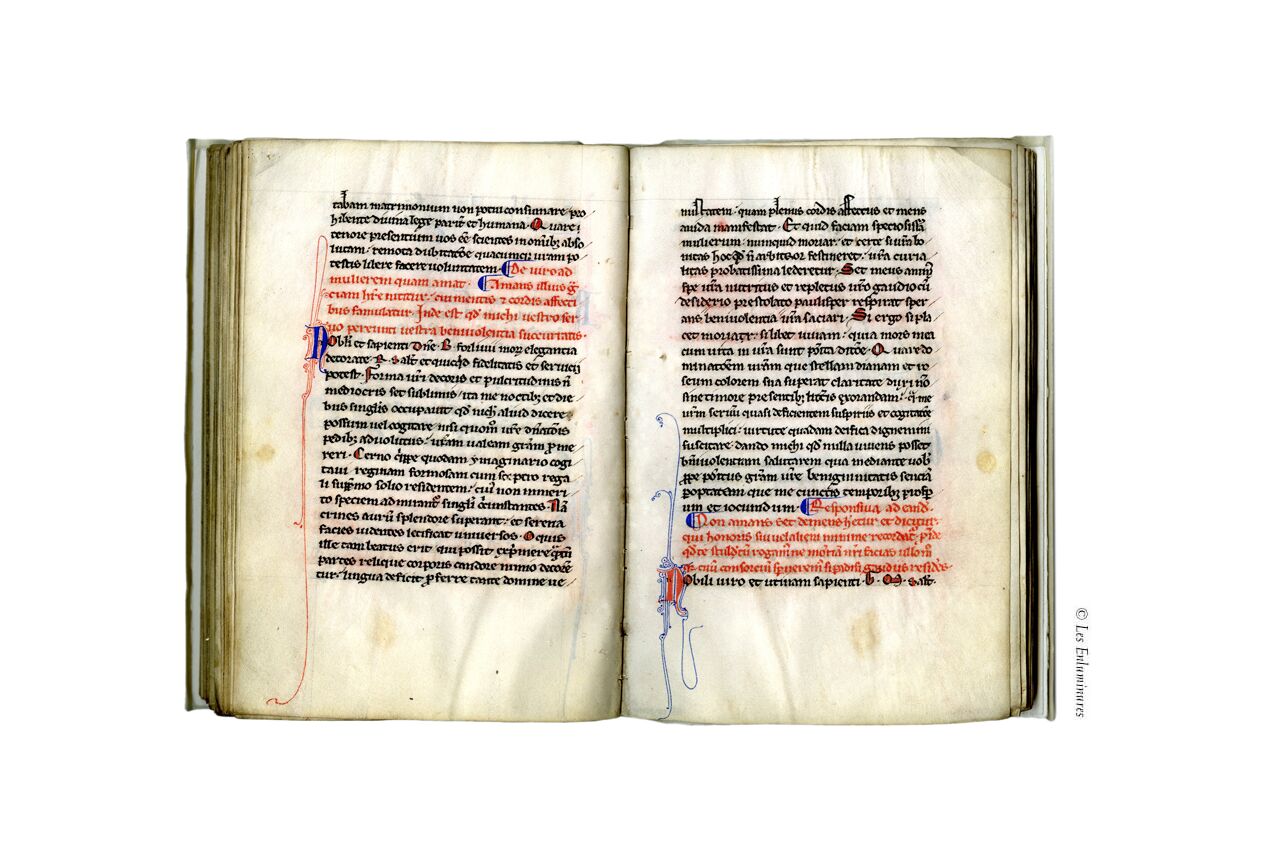 tabam matrimonium non potui consumare pro
hibente divina lege parit et humana. Quare
tenore presentium vos ee scientes in omnibus abso
lutam. remota dubitatoe quacumque vram po
testis libere facere voluntatem. De viro ad
mulierem quam amat. Amans illius
ciam hre nititur. cui mentis et cordis affecti
bus famulatur. Inde est qd michi vestro ser
vo pereunti vestra benivolentia succurratis
Nobili et sapienti Dne. B. forliui mor elegantia
decorate. R. salt et quicqd fidelitatis et servicii
potest. Forma vri decoris et pulcritudinis n
mediocris set sublimis ita me noctibus et die
bus singulis occupavit qd nich aliud dicere
possum vel cogitare nisi quom vre
pedibus advolutus. vram valeam gram p me
reri. Cerno quodam ymaginario cogi
tatui reginam formosam cum sceptro rega
li supmo solio residentem. cui non inmeri
to speciem admirant singuli circunstantes. Nam
crines auru splendore superant. et serena
facies videntes letificat universos. O quis
ille tam beatus erit qui possit exprimere
partes relique corporis candore nimio decore
tur. lingua deficit pferre tante domine ve
nustatem. quam plenus cordis affectus et mens
avida manifestat. Et quid faciam speciosissima
mulierum numquid moriar. et certe
nitas hoc arbitror festineret. vra curia
litas probatissima lederetur. Set meus
spe vra nutritus et repletus vro gaudio cu
desiderio prestolato paulisper respirat sper
ans benivolentia vra saciari. Si ergo si pla
cet moriar. si libet vivam. quia mors mea
cum vita in vra sunt posita ditoe. Quare do
minatoem vram que stellam dianam et ro
seum colorem sua superat claritate duxi no
sine timore presentibus litteris exorandam.
vrm servum quasi deficientem suspiriis et cogitatoe
multiplici. virtute quadam deifica dignemini
suscitare. dando michi qd nulla vivens posset
benivolentiam salutarem qua mediante vob
positus gram vre benignitatis senciam
peroptatam que me cunctis temporibus prosp
um et iocundum. Responsiva ad eand
Non amans set demens hetur et dicitur.
qui honoris sui velalieni minime recordatur.
qd te stultum rogamine mortem nri facias
cum consorcem si padisi gaudiis resides
Nobili viro et utinam sapienti. b. M. salt.
© Les Enluminures